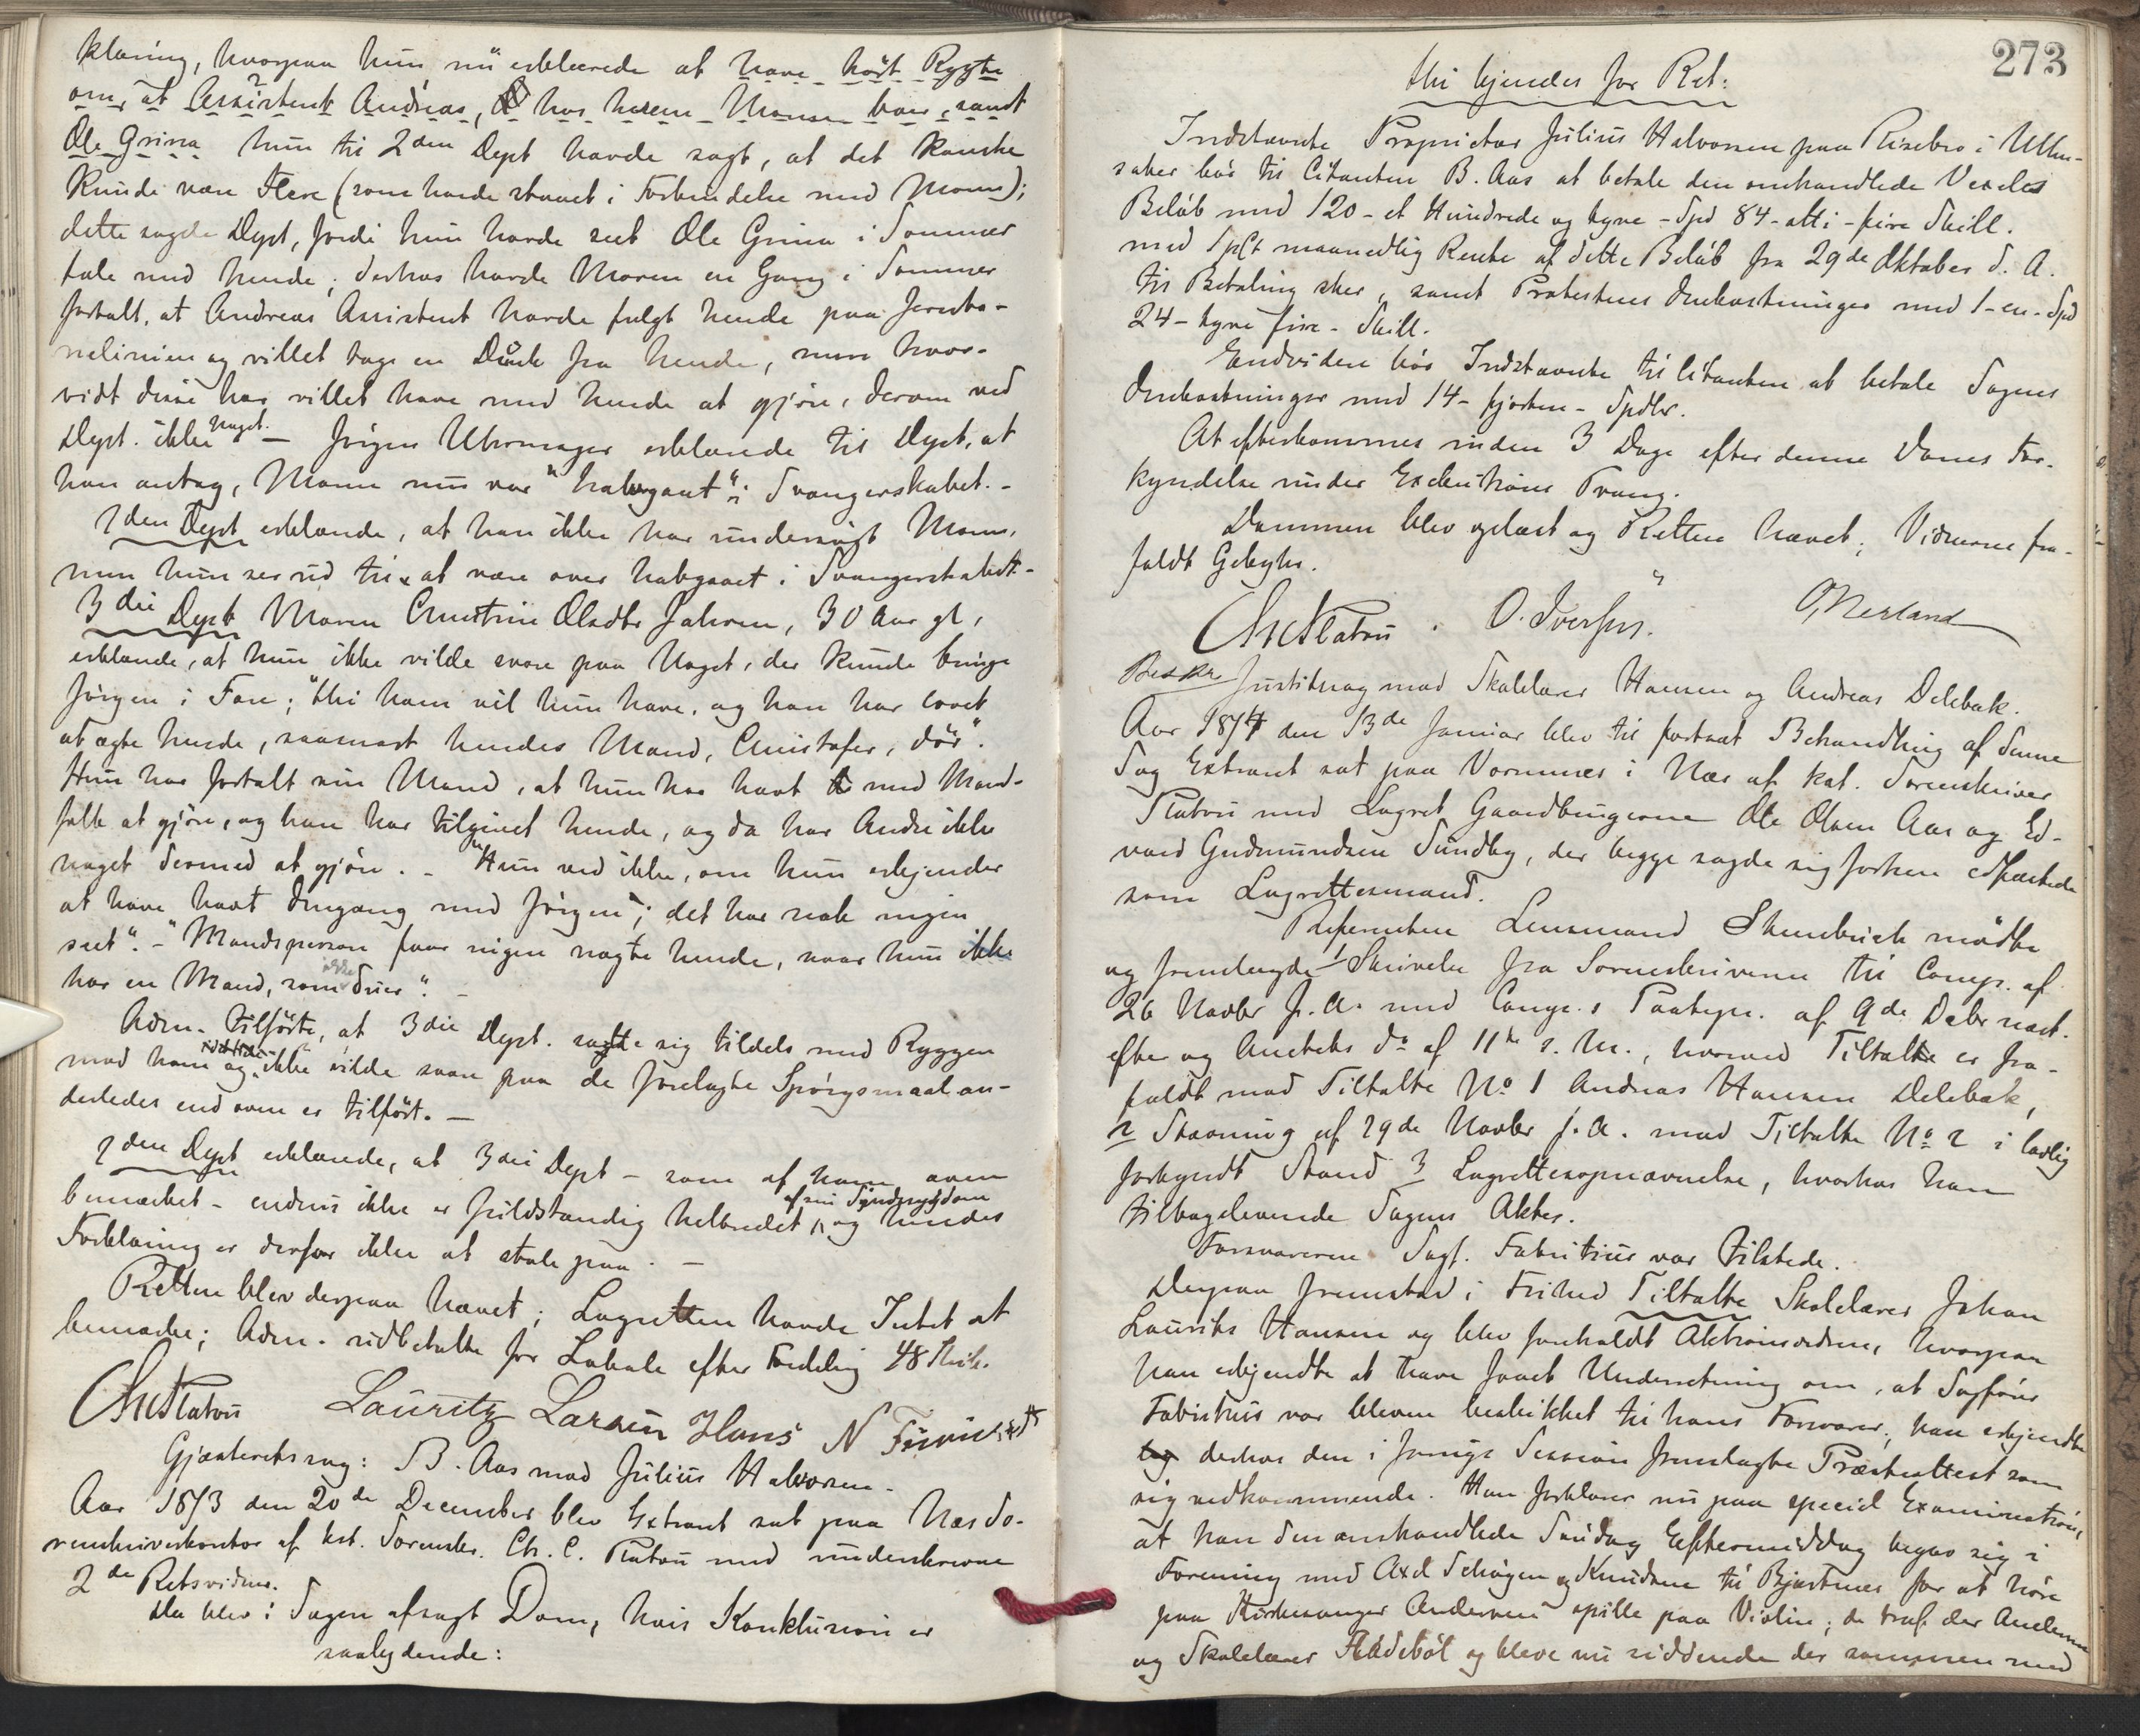 klaring, hvorpaa hun nu erklærede at have hørt Rygte
om, at Assistent Andreas, hos herem Monsen har, samt
Ole Grina hun til 2den Dept havde sagt, at det kanske
kunde være Flere (som havde staaet i Forbindelse med Maren);
dette sagde Dept, fordi hun havde seet Ole Grina i Sommer
tale med hende; derhos havde Maren en Gang i Sommer
fortalt, at Andreas Assistent havde fulgt hende paa Jernba-
nelinien og villet tage en Dunk fra hende, men hvor-
vidt disse har villet have med hende at gjøre, derom ved
Dept. ikke noget. — Jørgen Uhrmager erklærede til Dept, at
han antog, Maren nu var "halvgaaet" i Svangerskabet. -
2den Dept erklærede, at han ikke har undersøgt Maren,
men hun ser ud til at være over halvgaaet i Svangerskabet -
3die Dept Maren Christine Olsdtr Jahren, 30 Aar gl,
erklærede, at hun ikke vilde svare paa Noget, der kunde bringe
Jørgen i Fare; "thi ham vil hun have, og han har lovet
at ægte hende, saasnart hendes Mand, Christofer, dør".
Hun har fortalt sin Mand, at hun har havt med Mand-
folk at gjøre, og han har tilgivet hende, og da har Andre ikke
noget dermed at gjøre. - "Hun ved ikke, om hun erkjender
at have havt Omgang med Jørgen; det har nok ingen
seet". - "Mandsperson faar ingen nægte hende, naar hun ikke
har en Mand, som duer". -
Adm. tilførte, at 3die Dept. satte sig tildels med Ryggen
mod ham og ikke vilde svare paa de forelagte Spørgsmaal an-
derledes end oven er tilført. —
2den Dept erklærede, at 3die Dept - som af ham oven
bemærket - endnu ikke er fuldstændig helbredet af sin Sindssygdom, og hendes
Forklaring er derfor ikke at stole paa. —
Retten blev derpaa hævet; Lagretten havde Intet at
bemærke; Adm. udbetalte for Lokale efter Fordeling 48 Skill.
Chr Platou Lauritz Larsen Hans N
Gjæsteretssag: B. Aas mod Julius Halvorsen.
Aar 1873 den 20de December blev Extraret sat paa Næs So-
renskriverkontor af kst. Sorenskr. Ch. C. Platou med underskrevne
2de Retsvidner.
Da blev i Sagen afsagt Dom, hvis Konklusion er
saalydende:
273
thi kjendes for Ret:
Indstævnte Proprietær Julius Halvorsen paa Risebro i Ullen-
saker bør til Citanten B. Aas at betale den omhandlede Vexels
Beløb med 120 - et Hundrede og tyve - Spd 84 - otti - fire Skill.
med maanedlig Rente af dette Beløb fra 29de Oktober d. A.
til Betaling sker, samt Protestens Omkostninger med 1 - en - Spd
24 - tyve fire - Skill.
Endvidere bør Indstævnte til Citanten at betale Sagens
Omkostninger med 14 - fjorten - Spdlr.
At efterkommes inden 3 Dage efter denne Doms For-
kyndelse under Exekutions Tvang.
Dommen blev oplæst og Retten hævet; Vidnerne fra-
faldt Gebyhr.
Chr Platou. O. Iversen. O. Nerland
Justitssag mod Skolelærer Hansen og Andreas Delebæk.
Aar 1874 den 13de Januar blev til fortsat Behandling af denne
Sag Extraret sat paa Vormnæs i Næs af kst. Sorenskriver
Platou med Lagret Gaardbrugerne Ole Olsen Aas og Ed-
vard Gudmundsen Sundby, der begge sagde sig forhen edfæstede
som Lagrettesmænd.
Referenten Lensmand mødte
og fremlagde 1 Skrivelse fra Sorenskriveren til Comp. af
26 Novbr f. A. med Comp.s Paategn. af 9de Decbr næst-
efter og Amtets do af 11te s. M., hvorved Tiltalte er fra-
faldt mod Tiltalte No 1 Andreas Hansen Delebæk,
2 Stævning af 29de Novbr f. A. mod Tiltalte No 2 i lovlig
forkyndt Stand 3 Lagrettesopnævnelse, hvorhos han
tilbageleverede Sagens Akter.
Forsvareren Sagf. Fabritius var tilstede.
Derpaa fremstod i Frihed Tiltalte Skolelærer Johan
Laurits Hansen og blev foreholdt Aktionsordren, hvorpaa
han erkjendte at have faaet Underretning om, at Sagfører
Fabritius var bleven beskikket til hans Forsvarer; han erkjendte
derhos den i forrige Session fremlagte Præsteattest som
sig vedkommende. Han forklarer nu paa speciel Examination,
at han den omhandlede Søndag Eftermiddag begav sig i
Forening med Axel Schøgen og Knudsen til Bjertnæs for at høre
paa Kirkesanger Andersens spille paa Violin; de traf der Andersen
og Skolelærer og bleve nu siddende der sammen med